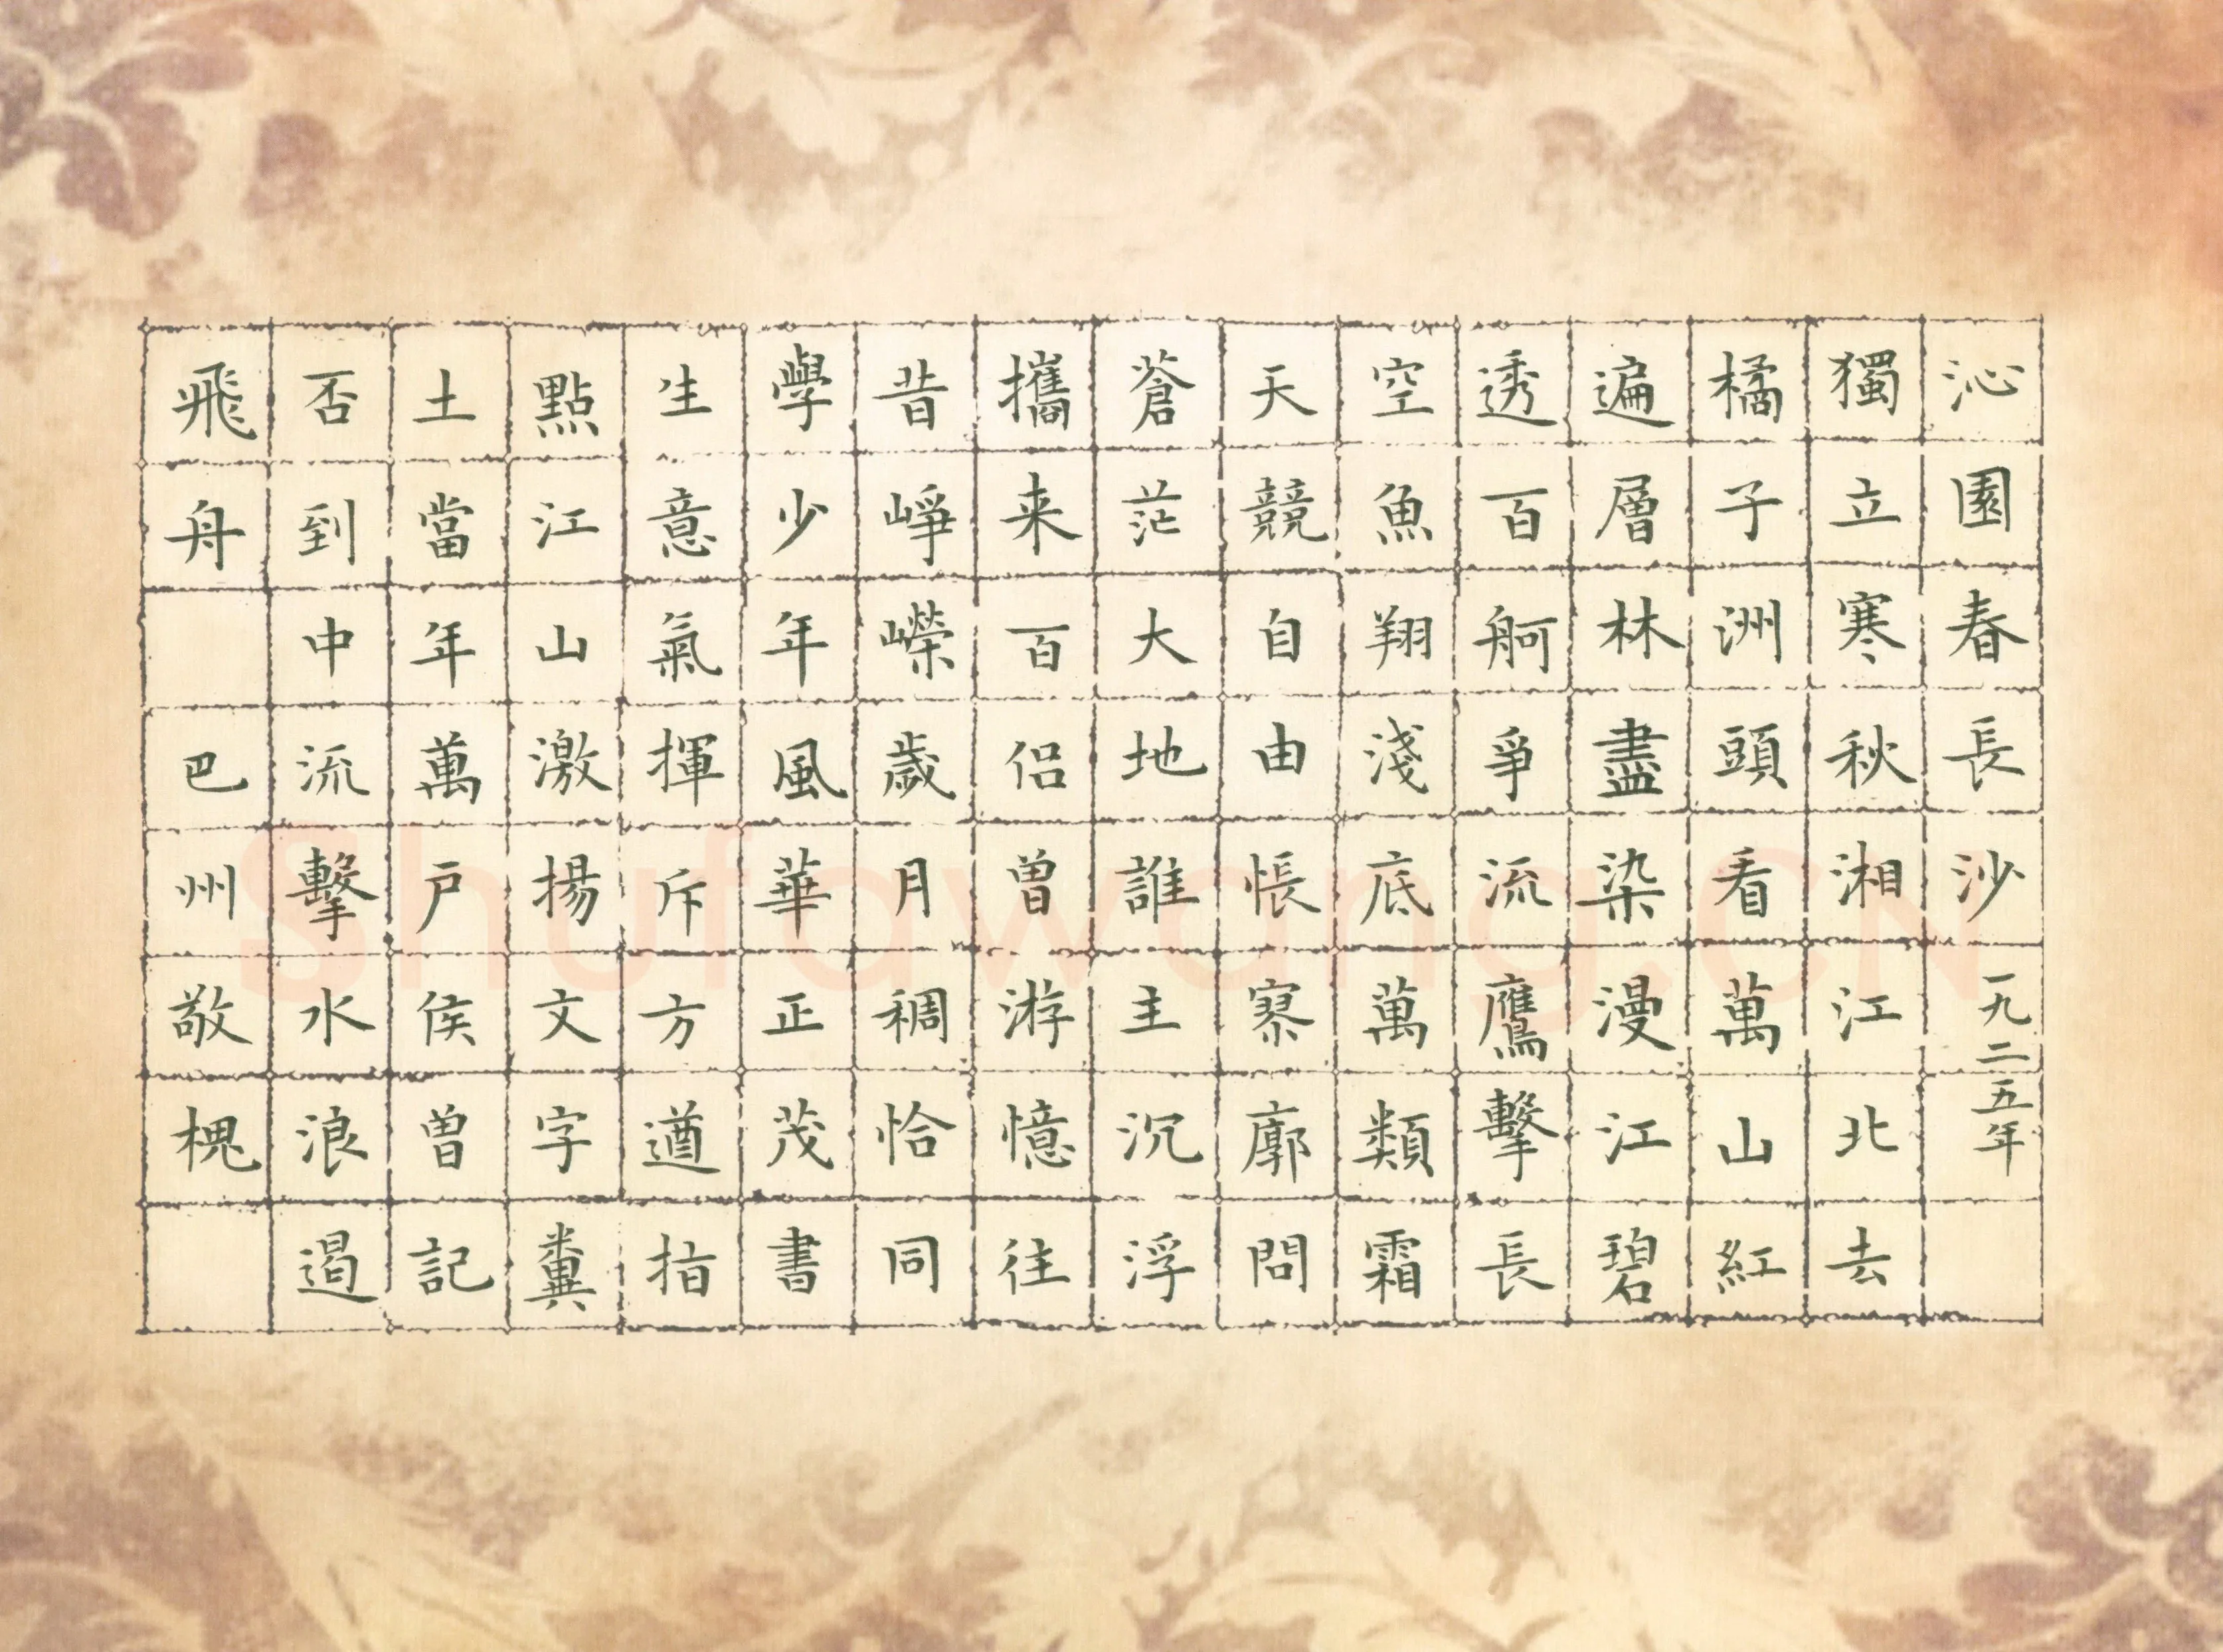 沁園春長沙一九二五年
獨立寒秋湘江北去
橘子洲頭看萬山紅
遍層林盡染漫江碧
透百舸爭流鷹擊長
空魚翔淺底萬類霜
天競自由悵寥廓問
蒼茫大地誰主沉浮
攜来百侣曾游憶往
昔崢嶸歲月稠恰同
學少年風華正茂書
生意氣揮斥方遒指
點江山激揚文字糞
土當年萬户侯曾記
否到中流擊水浪遏
飛舟 巴州敬槐
Shufawang.CN